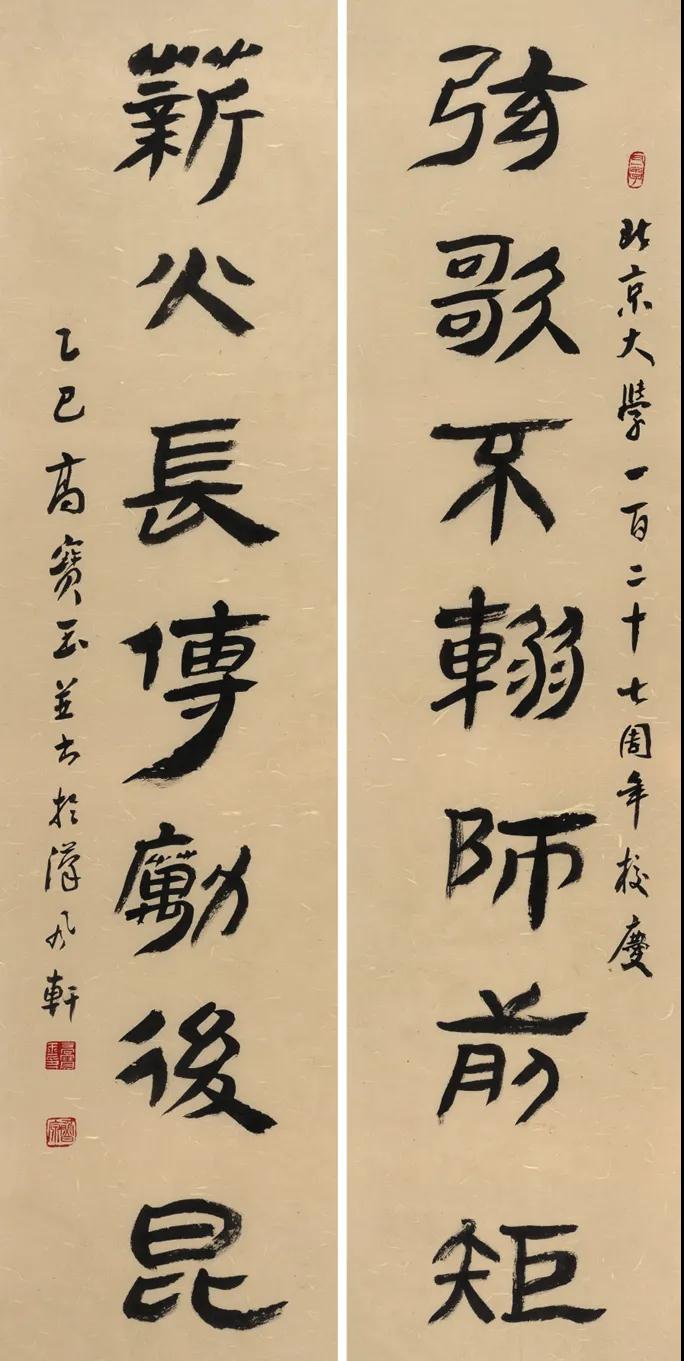 北京大學一百二十七周年校慶
弦歌不輟師前矩
薪火長傳勵後昆
乙巳高寶玉並书於漢风軒